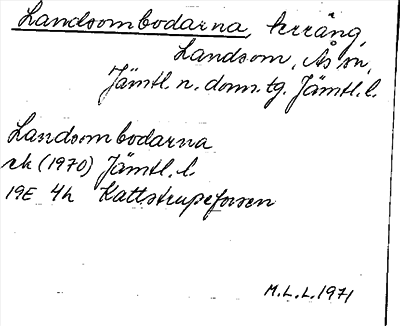 Landsombodarna, terräng,
Landsom, Ås sn,
Jämtl. n. doms.tg. Jämtl. l.
Landsombodarna
ek (1970) Jämtl. l.
19E 4h Kattstrupeforsen
M.L.L. 1971